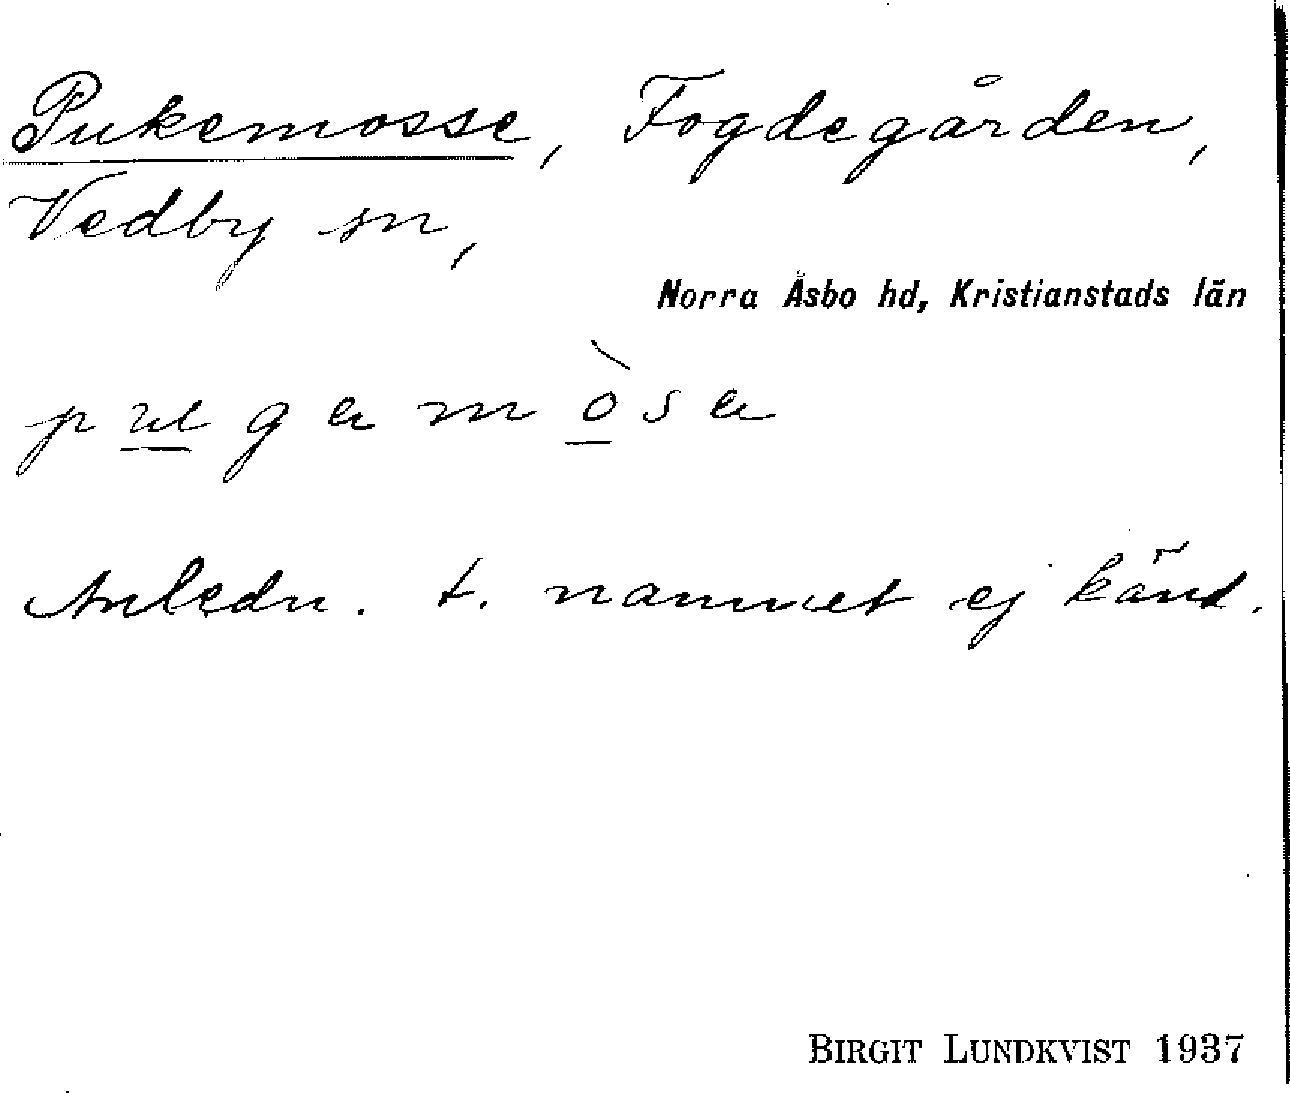 Pukemosse, Fogdegården,
Vedby sn,
Norra Åsbo hd, Kristianstads län
pugamòsa
Anledn. t. namnet ej känd.
BIRGIT LUNDKVIST 1937